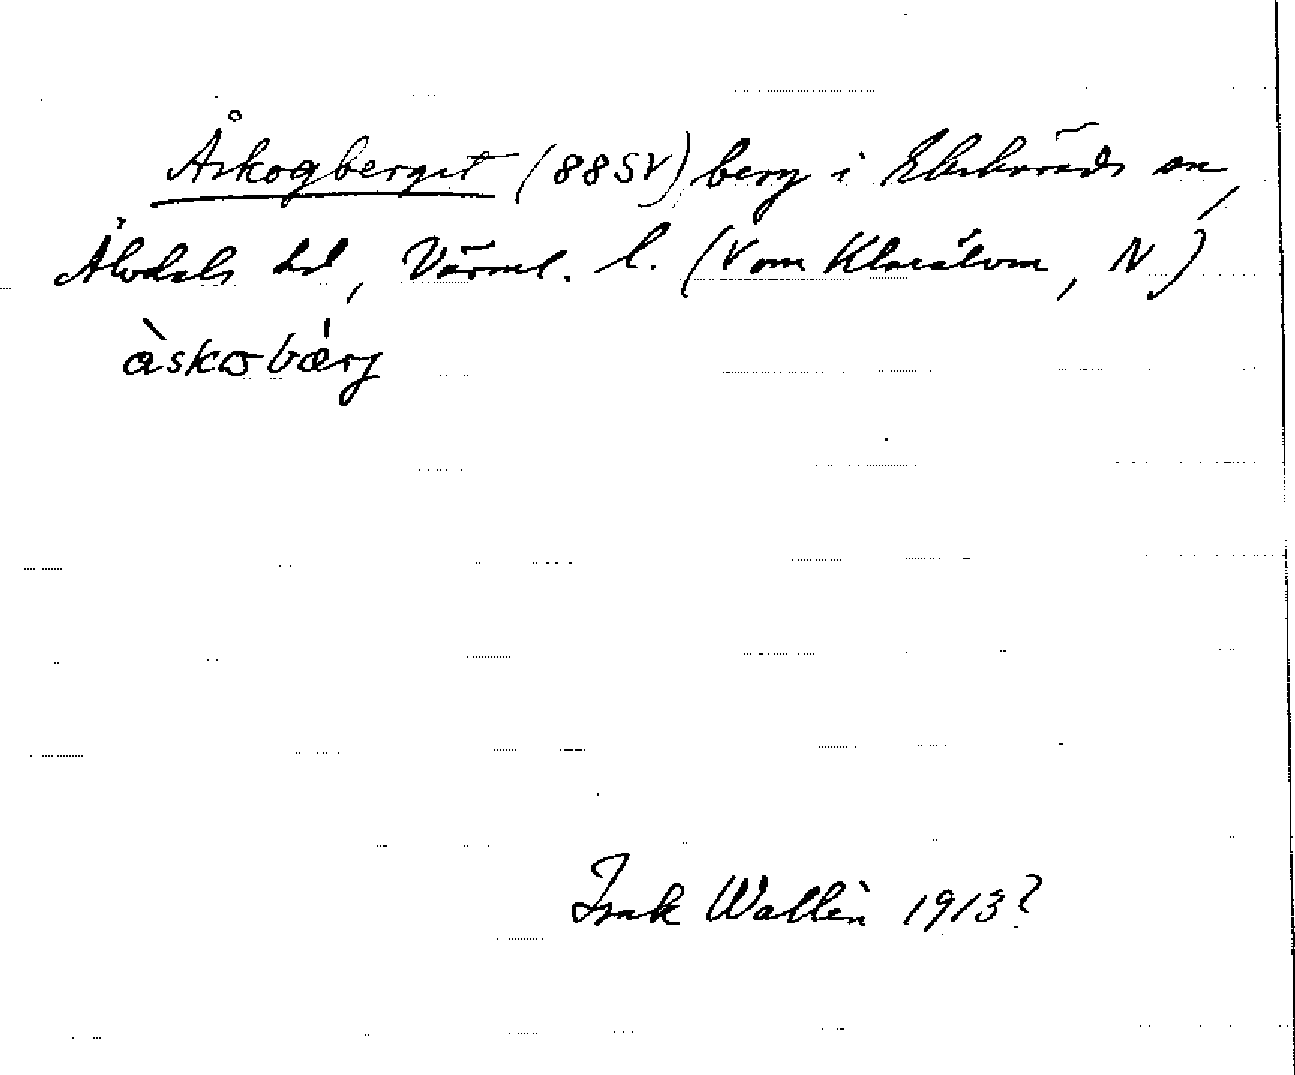 Åskogberget (88SV) berg i Ekshärads sn,
Älvdals hd, Värml. l. (V om Klarälven, N.)
àskobærj
Isak Wallin 1913?